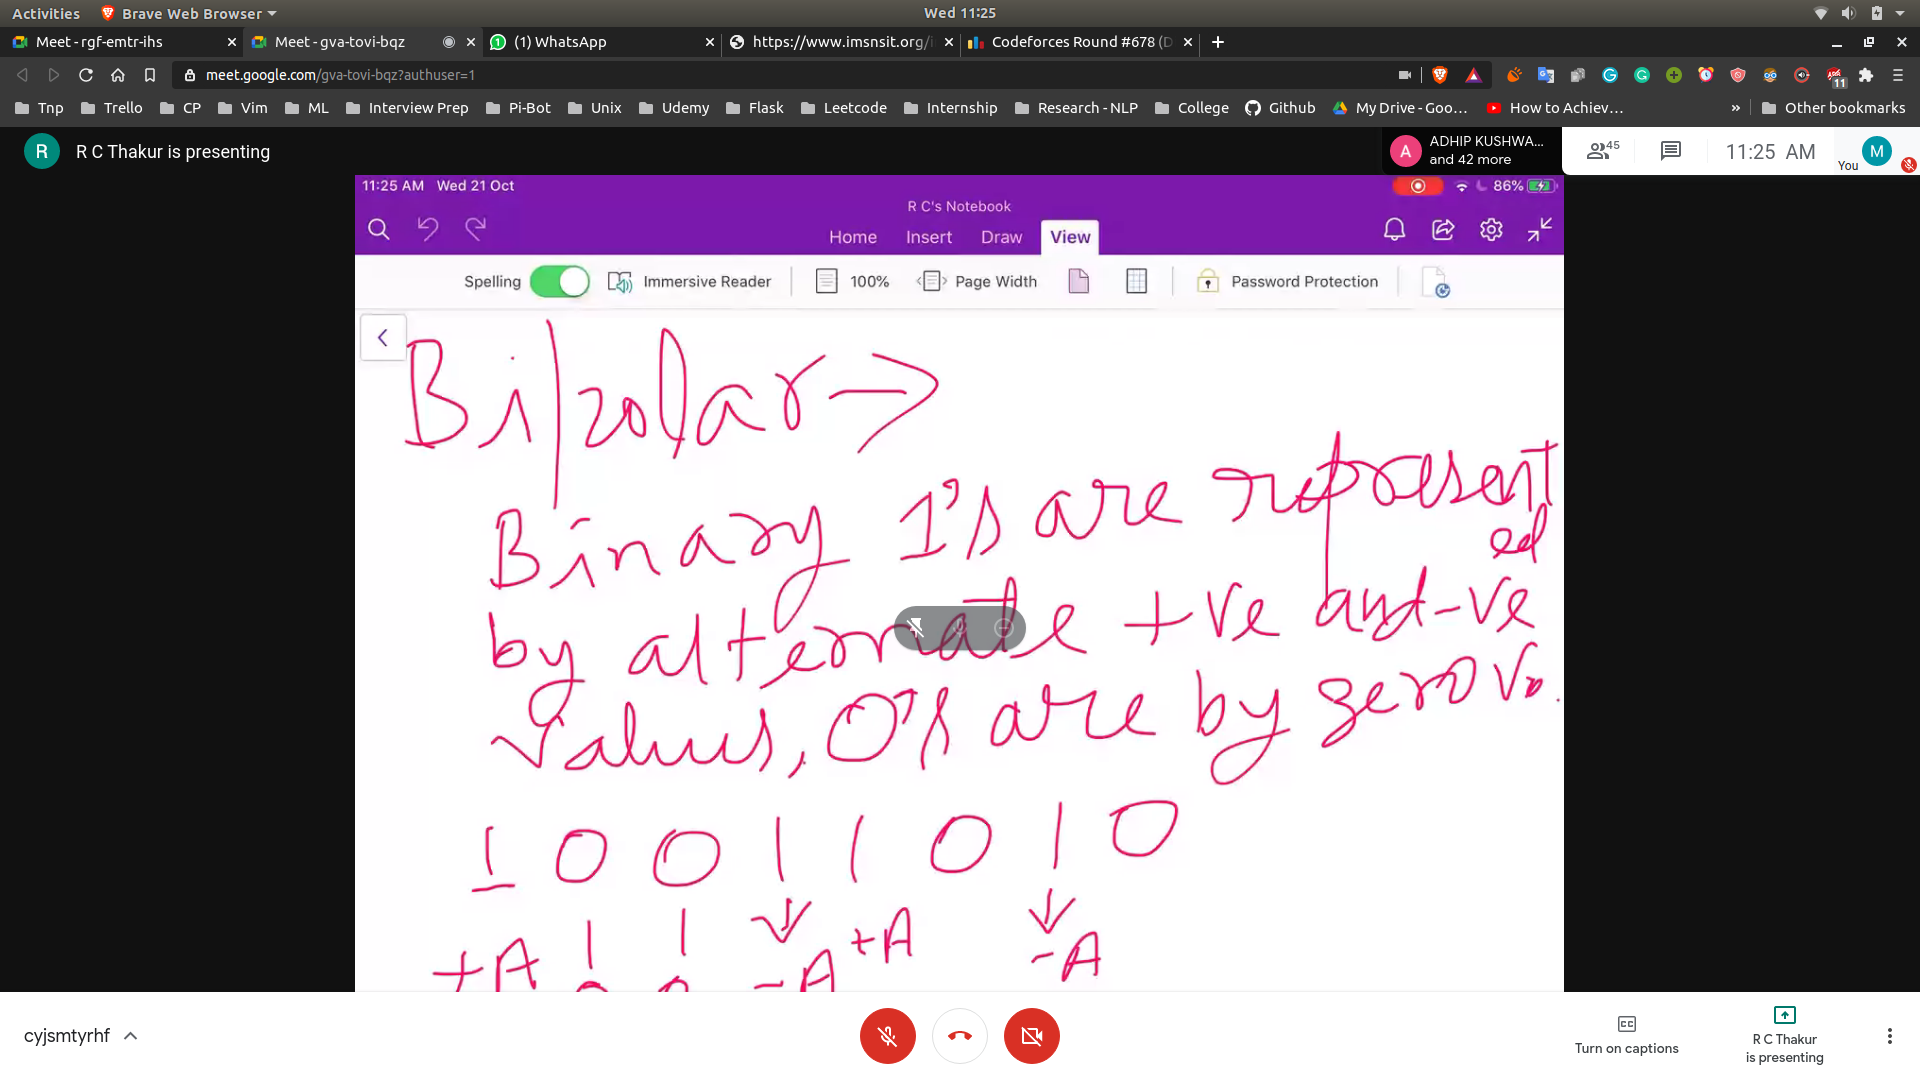 Activities Brave Web Browser Wed 11:25
Meet - rgf-emtr-ihs Meet - gva-tovi-bqz (1) WhatsApp https://www.imsnsit.org/i Codeforces Round #678 (D
meet.google.com/gva-tovi-bqz?authuser=1 11
Tnp Trello CP Vim ML Interview Prep Pi-Bot Unix Udemy Flask Leetcode Internship Research - NLP College Github My Drive - Goo… How to Achiev… » Other bookmarks
R R C Thakur is presenting A ADHIP KUSHWA...
and 42 more 45 11:25 AM You M
11:25 AM Wed 21 Oct 86%
R C's Notebook
Home Insert Draw View
Spelling Immersive Reader 100% Page Width Password Protection
Bipolar →
Binary 1's are represent
ed
by alternate +ve and -ve
values, 0's are by zero V.
1 0 0 1 1 0 1 0
+A 0 0 -A +A -A
cyjsmtyrhf Turn on captions R C Thakur
is presenting